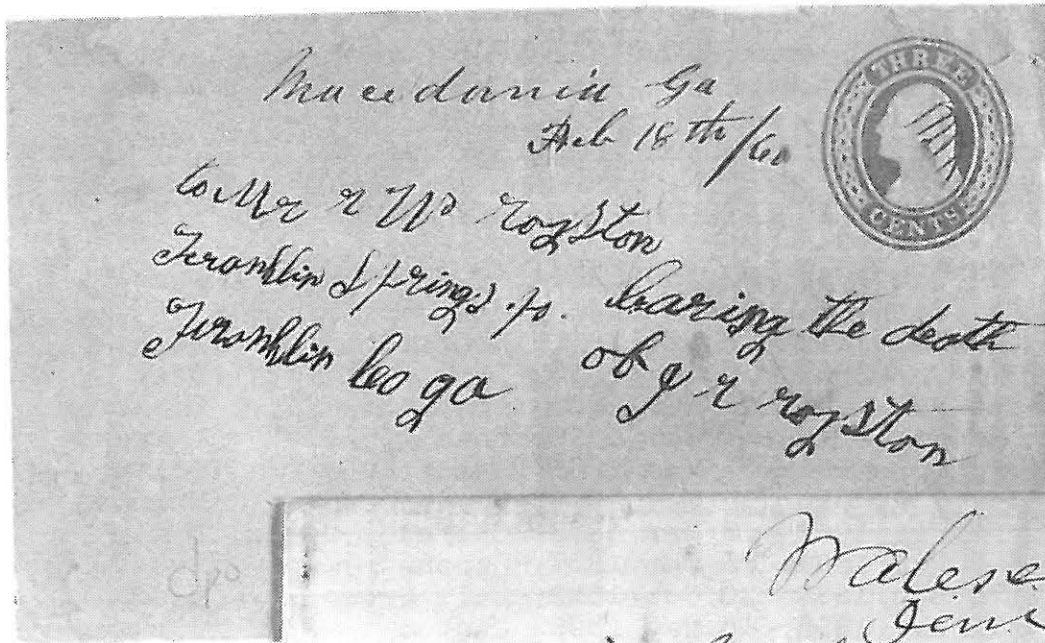 Macedonia Ga
Feb 18th/60
THREE
CENTS
to Mr r W royston
Franklin Springs. po.
Franklin Co ga
baring the death
of g r royston
dpo